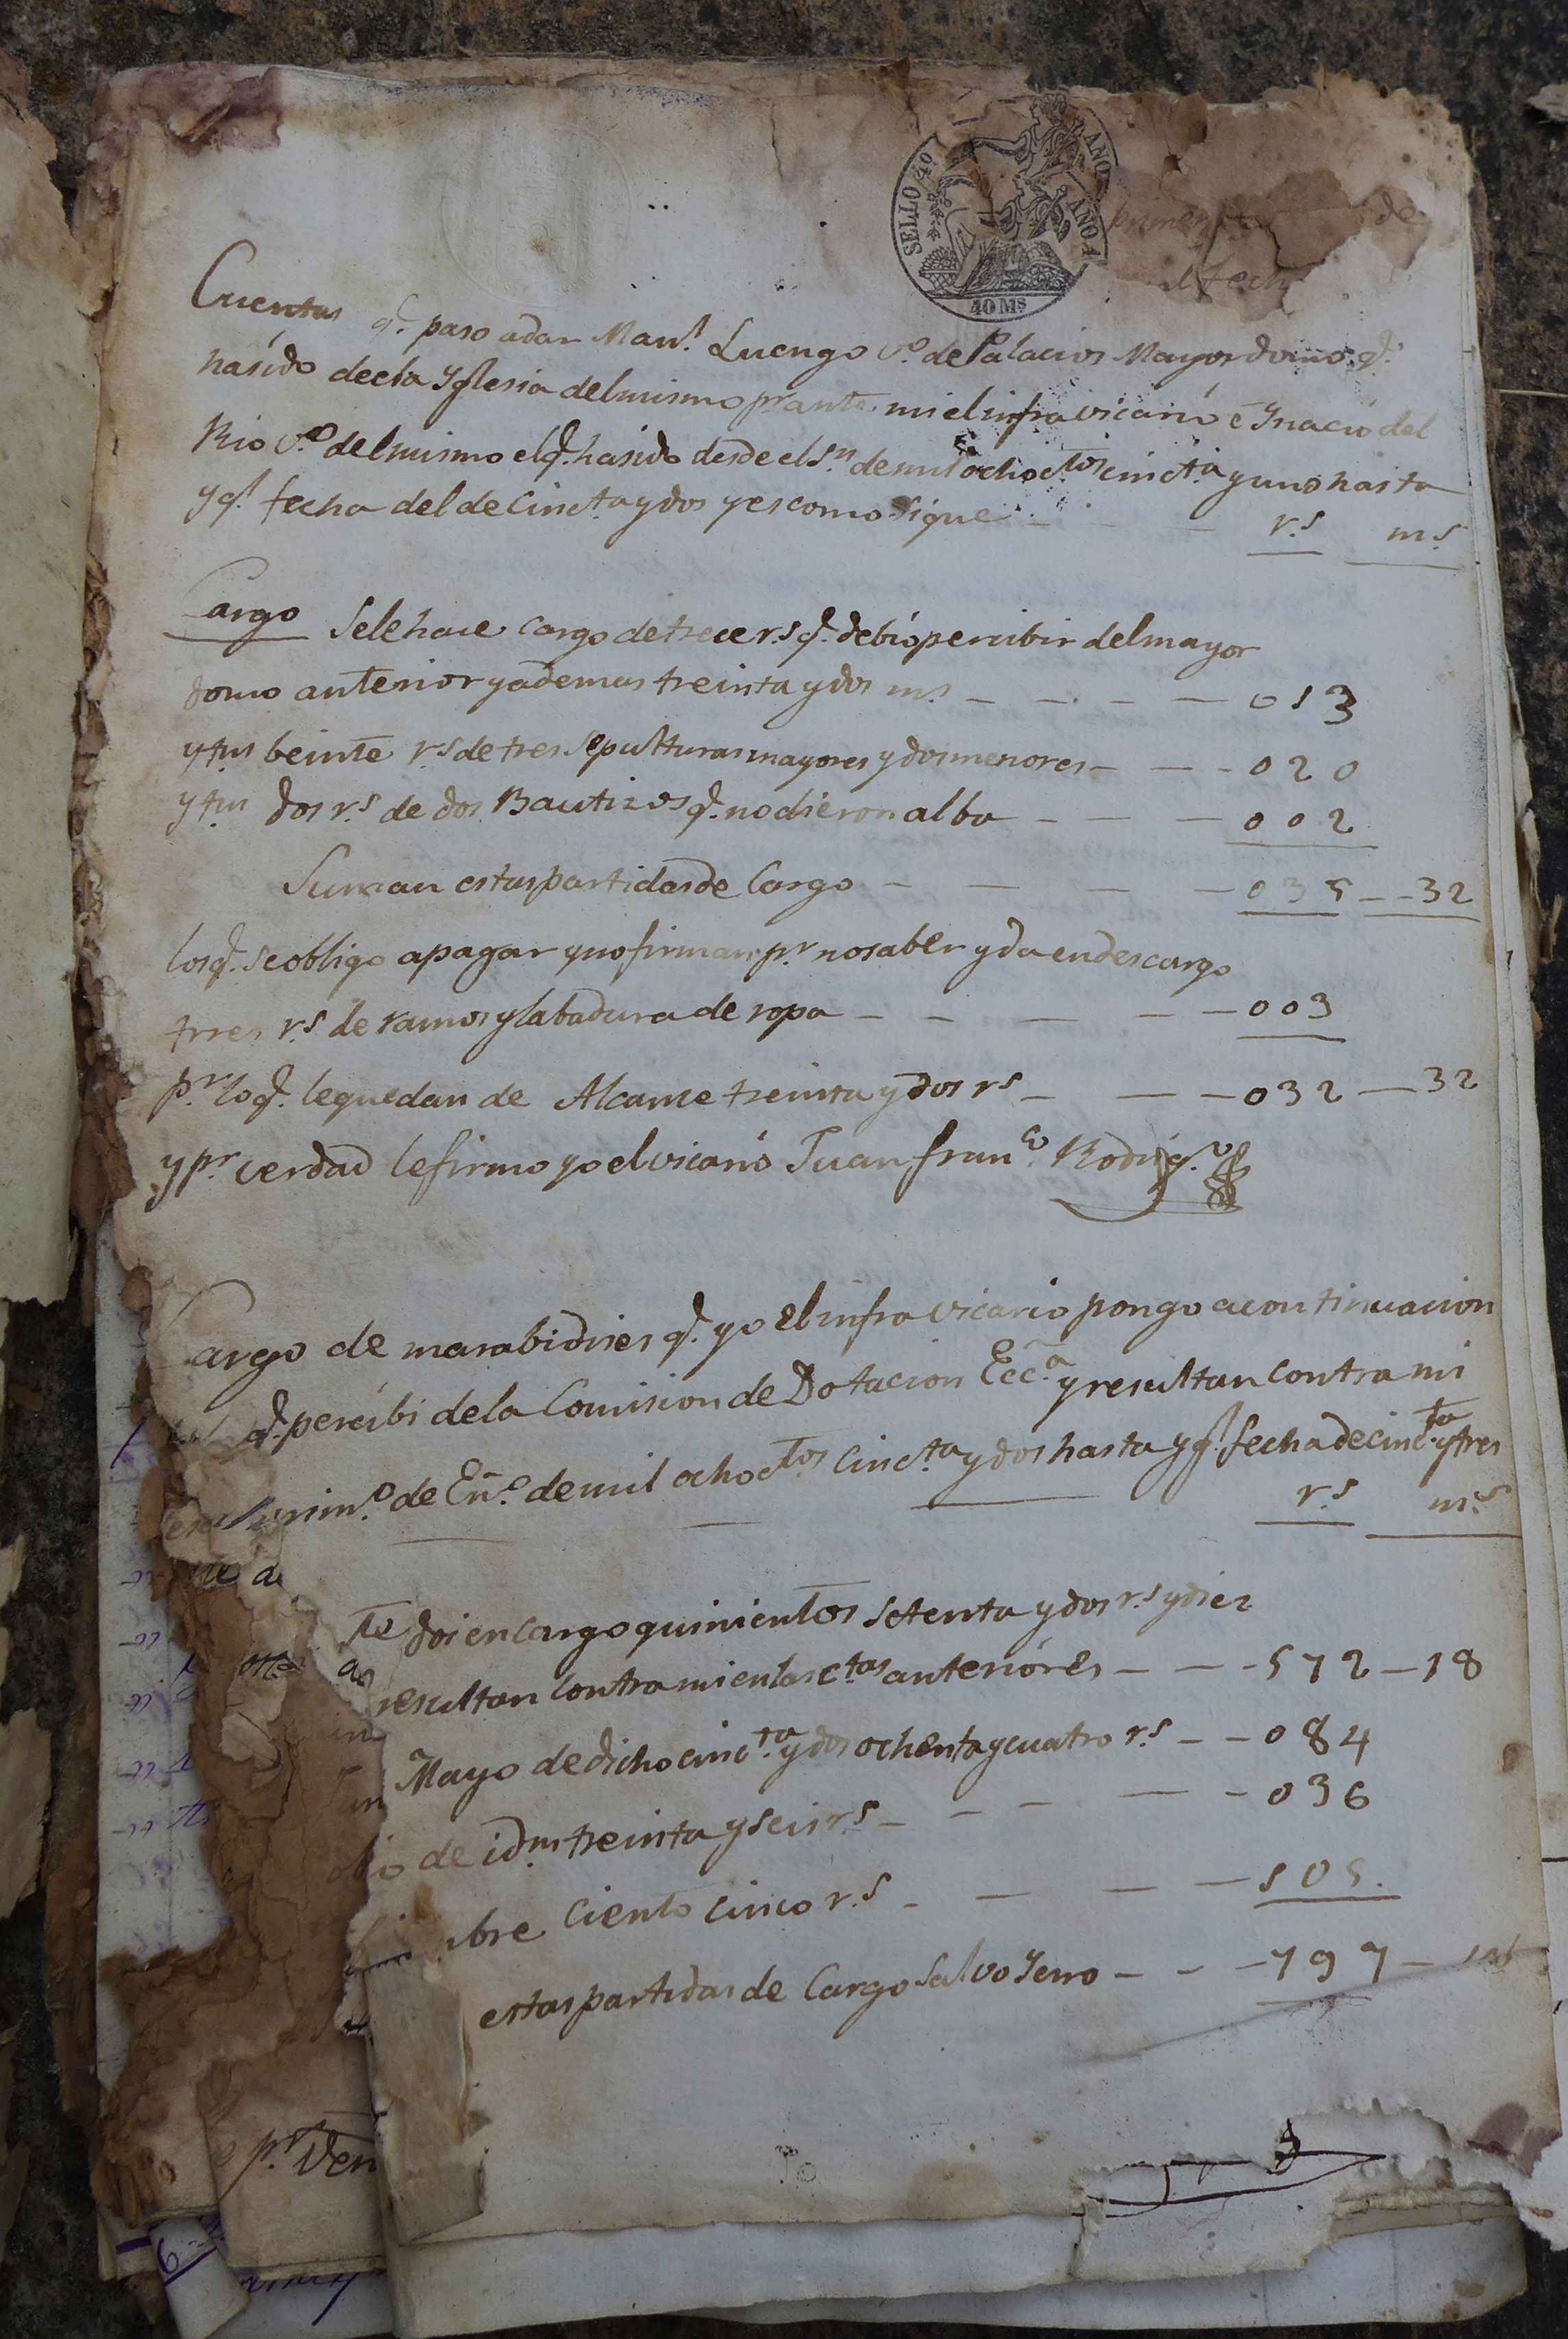 SELLO 4º
AÑO
AÑO
40 Ms
de
Cuentas q.e paso a dar Man.l Luengo V.o de Palacios Mayordomo q.e
ha sido de esta Yglesia del mismo p.r ante mi el infra vicario e Ynacio del
Rio V.o del mismo el q.e ha sido desde el S.n de mil ochoc.tos cinc.ta y uno hasta
y q.l fecha del de cinc.ta y dos y es como sigue - - - r.s m.s
Cargo Se le hace cargo de trece r.s q.e debió percibir del mayor
domo anterior y ademas treinta y dos ms - - - - 013
Yttm beinte r.s de tres sepulturas mayores y dos menores - - - 020
Yttm dos r.s de dos Bautizos q.e no dieron alba - - - 002
Suman estas partidas de Cargo - - - - 035 - - 32
los q.e se obligo a pagar y no firman p.r no saber y da en descargo
tres r.s de ramos y labadura de ropa - - - - - 003
p.r lo q.e le quedan de Alcance treinta y dos r.s - - - 032 - 32
y p.r verdad le firmo yo el vicario Juan Fran.co Rodrig.z
Cargo de marabidises q.e yo el infra vicario pongo a continuacion
q.e percibi de la Comision de Dotacion Ecc.a y resultan contra mi
prim.o de En.o de mil ochoc.tos cinc.ta y dos hasta y q.l fecha de cinc.ta y tres
r.s m.s
te doi en cargo quinientos setenta y dos r.s y diez
resultan contra mi en las c.tas anteriores - - - 572 - 18
Mayo de dicho cinc.ta y dos ochenta y cuatro r.s - - 084
de idm treinta y seis r.s - - - - - 036
bre ciento cinco r.s - - - - 105.
estas partidas de Cargo salvo Yerro - - - 797 -
p.r Ven